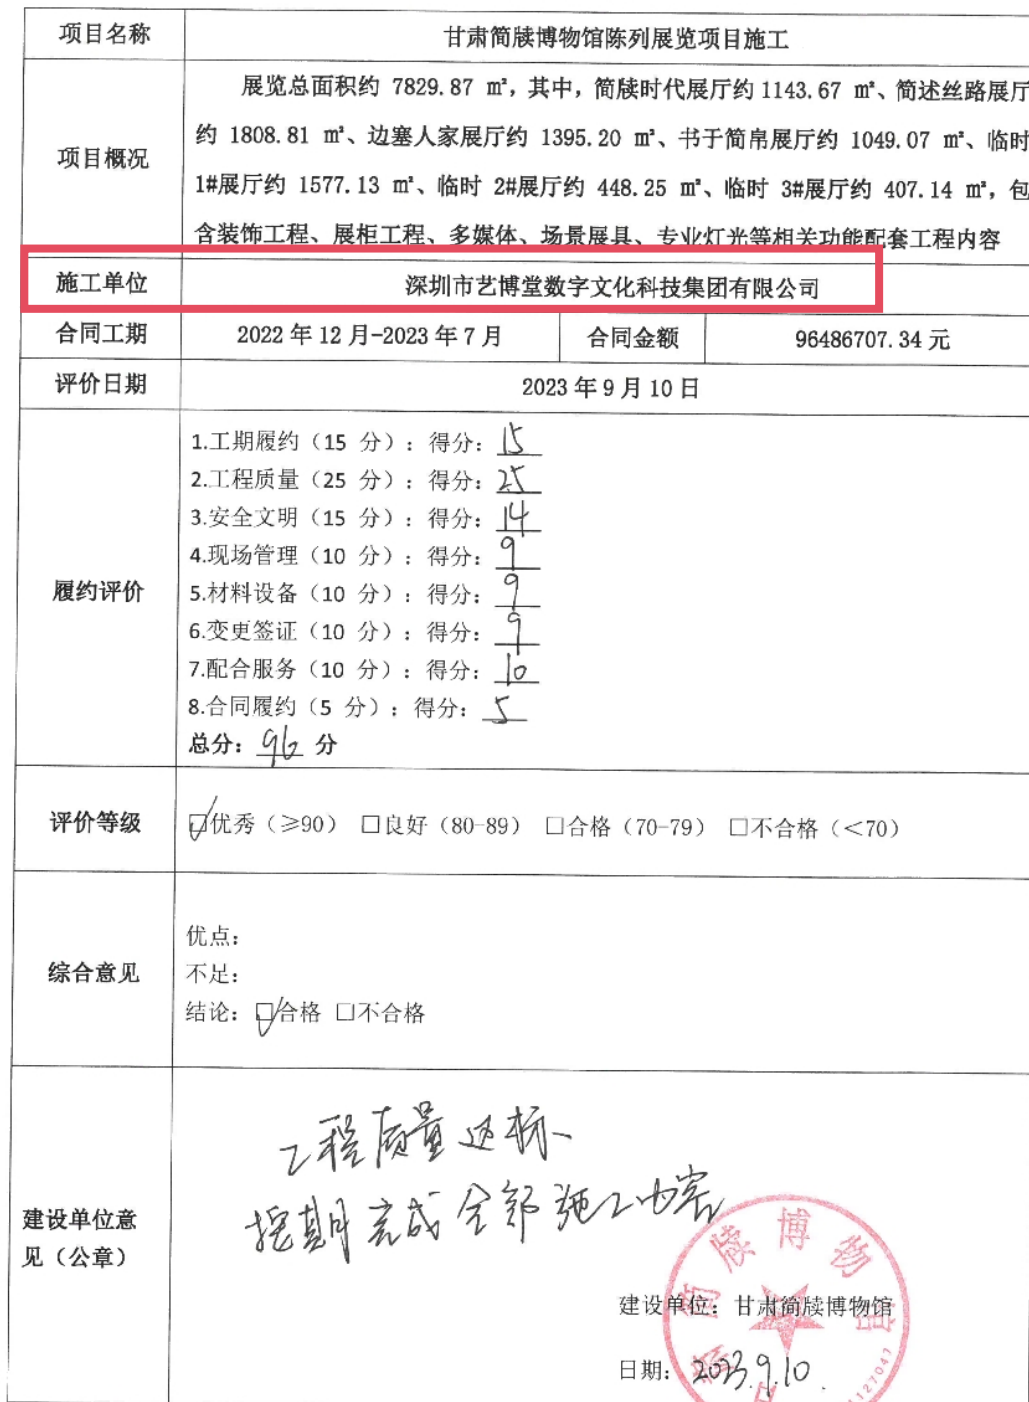 项目名称 甘肃简牍博物馆陈列展览项目施工
项目概况
展览总面积约 7829.87 ㎡，其中，简牍时代展厅约 1143.67 ㎡、简述丝路展厅
约 1808.81 ㎡、边塞人家展厅约 1395.20 ㎡、书于简帛展厅约 1049.07 ㎡、临时
1#展厅约 1577.13 ㎡、临时 2#展厅约 448.25 ㎡、临时 3#展厅约 407.14 ㎡，包
含装饰工程、展柜工程、多媒体、场景展具、专业灯光等相关功能配套工程内容
施工单位 深圳市艺博堂数字文化科技集团有限公司
合同工期 2022 年 12 月-2023 年 7 月 合同金额 96486707.34 元
评价日期 2023 年 9 月 10 日
履约评价
1.工期履约（15 分）：得分：15
2.工程质量（25 分）：得分：25
3.安全文明（15 分）：得分：14
4.现场管理（10 分）：得分：9
5.材料设备（10 分）：得分：9
6.变更签证（10 分）：得分：9
7.配合服务（10 分）：得分：10
8.合同履约（5 分）；得分：5
总分：96 分
评价等级 ☑优秀（≥90） □良好（80-89） □合格（70-79） □不合格（＜70）
综合意见
优点：
不足：
结论：☑合格 □不合格
建设单位意
见（公章）
工程质量达标
按期完成全部施工内容
建设单位：甘肃简牍博物馆
日期：2023.9.10
简牍博物馆
127047